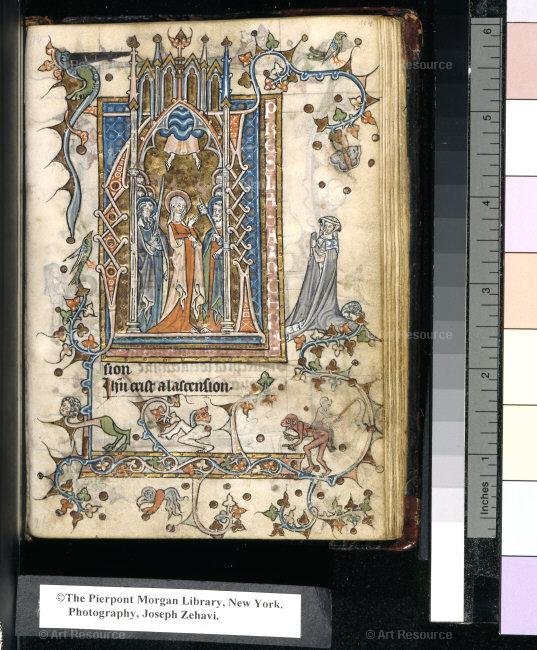 Art Resource
Art Resource
sion
ihu crist a lascension.
Art Resource
Art Resource
©The Pierpont Morgan Library, New York.
Photography, Joseph Zehavi.
© Art Resource
© Art Resource
6
5
4
3
2
1
Inches